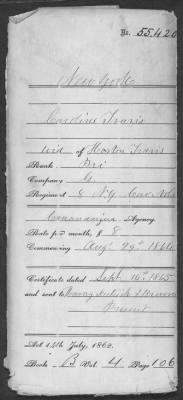 No. 55.420
New York
Caroline Travis
wid of Hoston Travis
Rank, Pri
Company G.
Regiment 8 N.Y. Cav. Vols
Canandaigua Agency.
Rate per month, $ 8
Commencing Aug 29th 1864
Certificate dated Sept 16th 1865
and sent to
Present
Act 14th July, 1862.
Book B Vol. 4 Page 106